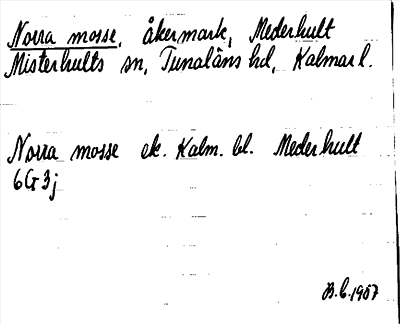 Norra mosse, åkermark, Mederhult
Misterhults sn, Tunaläns hd, Kalmar l.
Norra mosse ek. Kalm. bl. Mederhult
6G3j
B.C. 1967